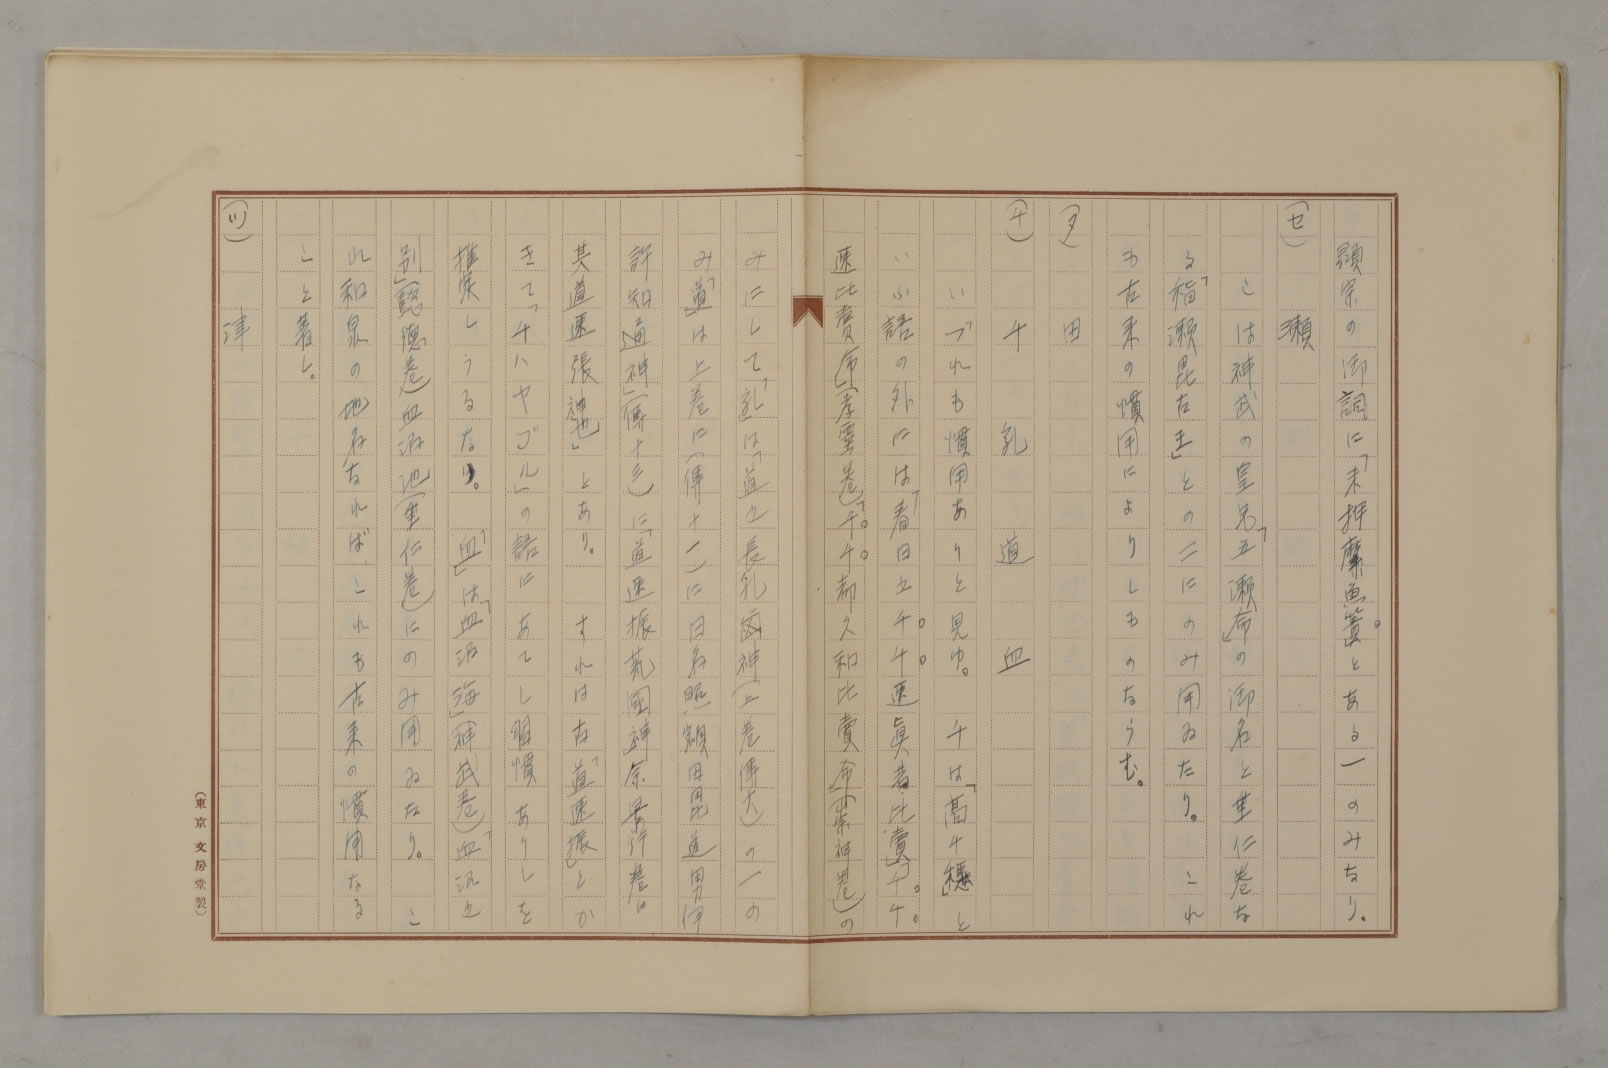 顕宗の御詞に「末押摩魚簀とある一のみなり。
(セ)　瀬
こは神武の皇兄「五瀬命」の御名と垂仁巻な
る「稲瀬毘古王」との二にのみ用ゐたり。これ
も古来の慣用によりしものならむ。
(タ)　田
(チ)　千　乳　道　血
いづれも慣用ありと見ゆ。　千は「高千穂」と
いふ語の外には「春日之千千速眞若比賣」「千千
速比賣命」(孝霊巻)「千千都久和比賣命」(崇神巻)の
みにして「乳」は「道之長乳歯神(上巻傳六)の一の
み「道」は上巻に(傳十一)に日名照額田毘道男伊
許知迩神」(傳十 )に「道速振荒國神 景行巻に
其道速張神也」とあり。　すれは古「道速振」とか
きて「チハヤブル」の語にあてし習慣ありしを
推定しうるなり。　「血」は「血沼海」(神武巻)「血沼之
別」(懿徳巻)血沼池(垂仁巻)にのみ用ゐたり。　こ
れ和泉の地名なればこれも古来の慣用なる
こと著し。
(ツ)　津
(東京 文房堂製)